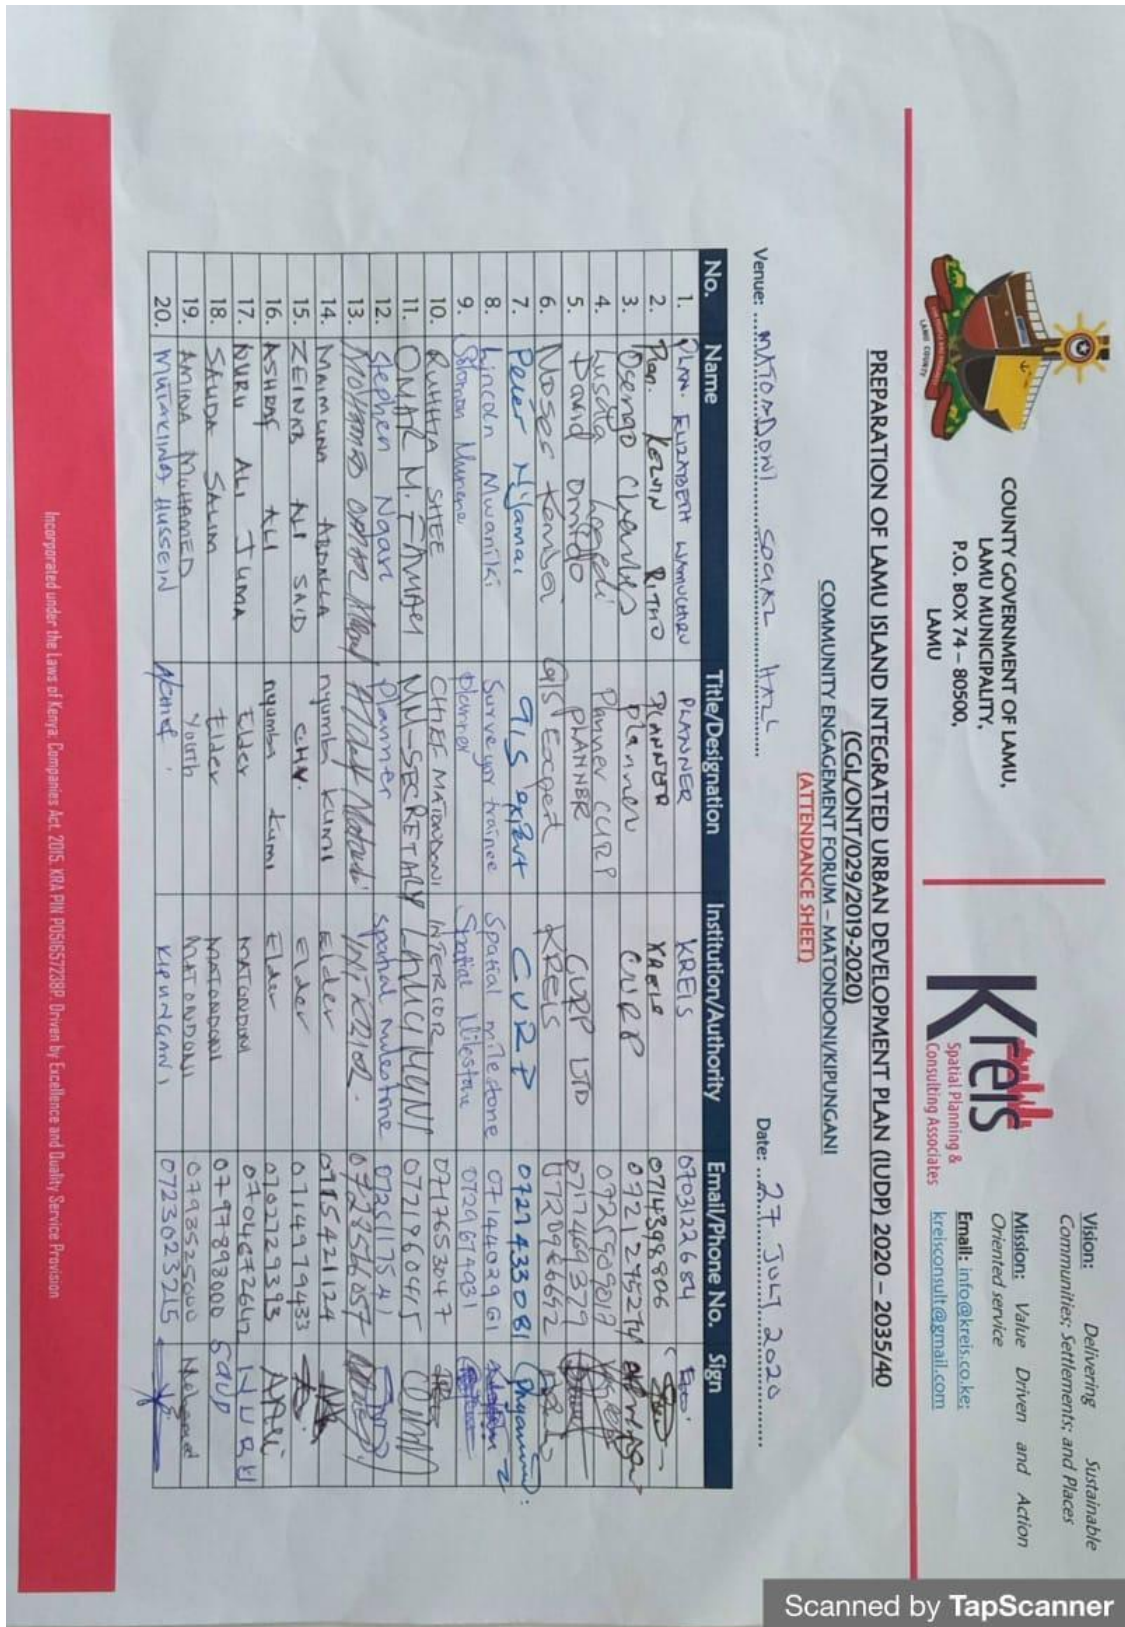 COUNTY GOVERNMENT OF LAMU,
LAMU MUNICIPALITY,
P.O. BOX 74 – 80500,
LAMU
LAMU COUNTY
Kreis
Spatial Planning &
Consulting Associates
Vision: Delivering Sustainable
Communities; Settlements; and Places
Mission: Value Driven and Action
Oriented service
Email: info@kreis.co.ke;
kreisconsult@gmail.com
PREPARATION OF LAMU ISLAND INTEGRATED URBAN DEVELOPMENT PLAN (IUDP) 2020 – 2035/40
(CGL/ONT/029/2019-2020)
COMMUNITY ENGAGEMENT FORUM – MATONDONI/KIPUNGANI
(ATTENDANCE SHEET)
Venue: MATONDONI SOCIAL HALL Date: 27 JULY 2020
No. Name Title/Designation Institution/Authority Email/Phone No. Sign
1. PLAN. ELIZABETH WAMUCHIRU PLANNER KREIS 0703122684
2. Plan. KELVIN RITHO PLANNER KREIS 0714398806
3. Charles Planner CURP
4. Planner CURP 0725909019
5. David Omido PLANNER CURP LTD 0717469379
6. Moses GIS Expert KREIS
7. Peter Nyamai GIS expert CURP 0727433081
8. Lincoln Mwaniki Surveyor trainee Spatial milestone 0714402961
9. Solomon Munene Planner Spatial Milestone 0729674931
10. RUKIYA SHEE CHIEF MATONDONI INTERIOR 0717653047
11. OMAR M. MM-SECRETARY LAMU MUNI 0721960415
12. Stephen Ngari Planner spatial milestone 0725117541
13. MOHAMED OMAR
14. MAIMUNA ABDALLA nyumba kumi Elder 0115421124
15. ZEINAB ALI SAID CHV. Elder 0714979433
16. ASHRAF ALI nyumba kumi Elder 0702729393 Ali
17. NURU ALI JUMA Elder MATONDONI 0704672647 NURU
18. SAUDA SALIM Elder MATONDONI 0797893000 SAUD
19. AMINA MOHAMED Youth MATONDONI 0793525000
20. HUSSEIN KIPUNGANI 0723023215
Incorporated under the Laws of Kenya: Companies Act, 2015. KRA PIN P051657238P. Driven by Excellence and Quality Service Provision
Scanned by TapScanner